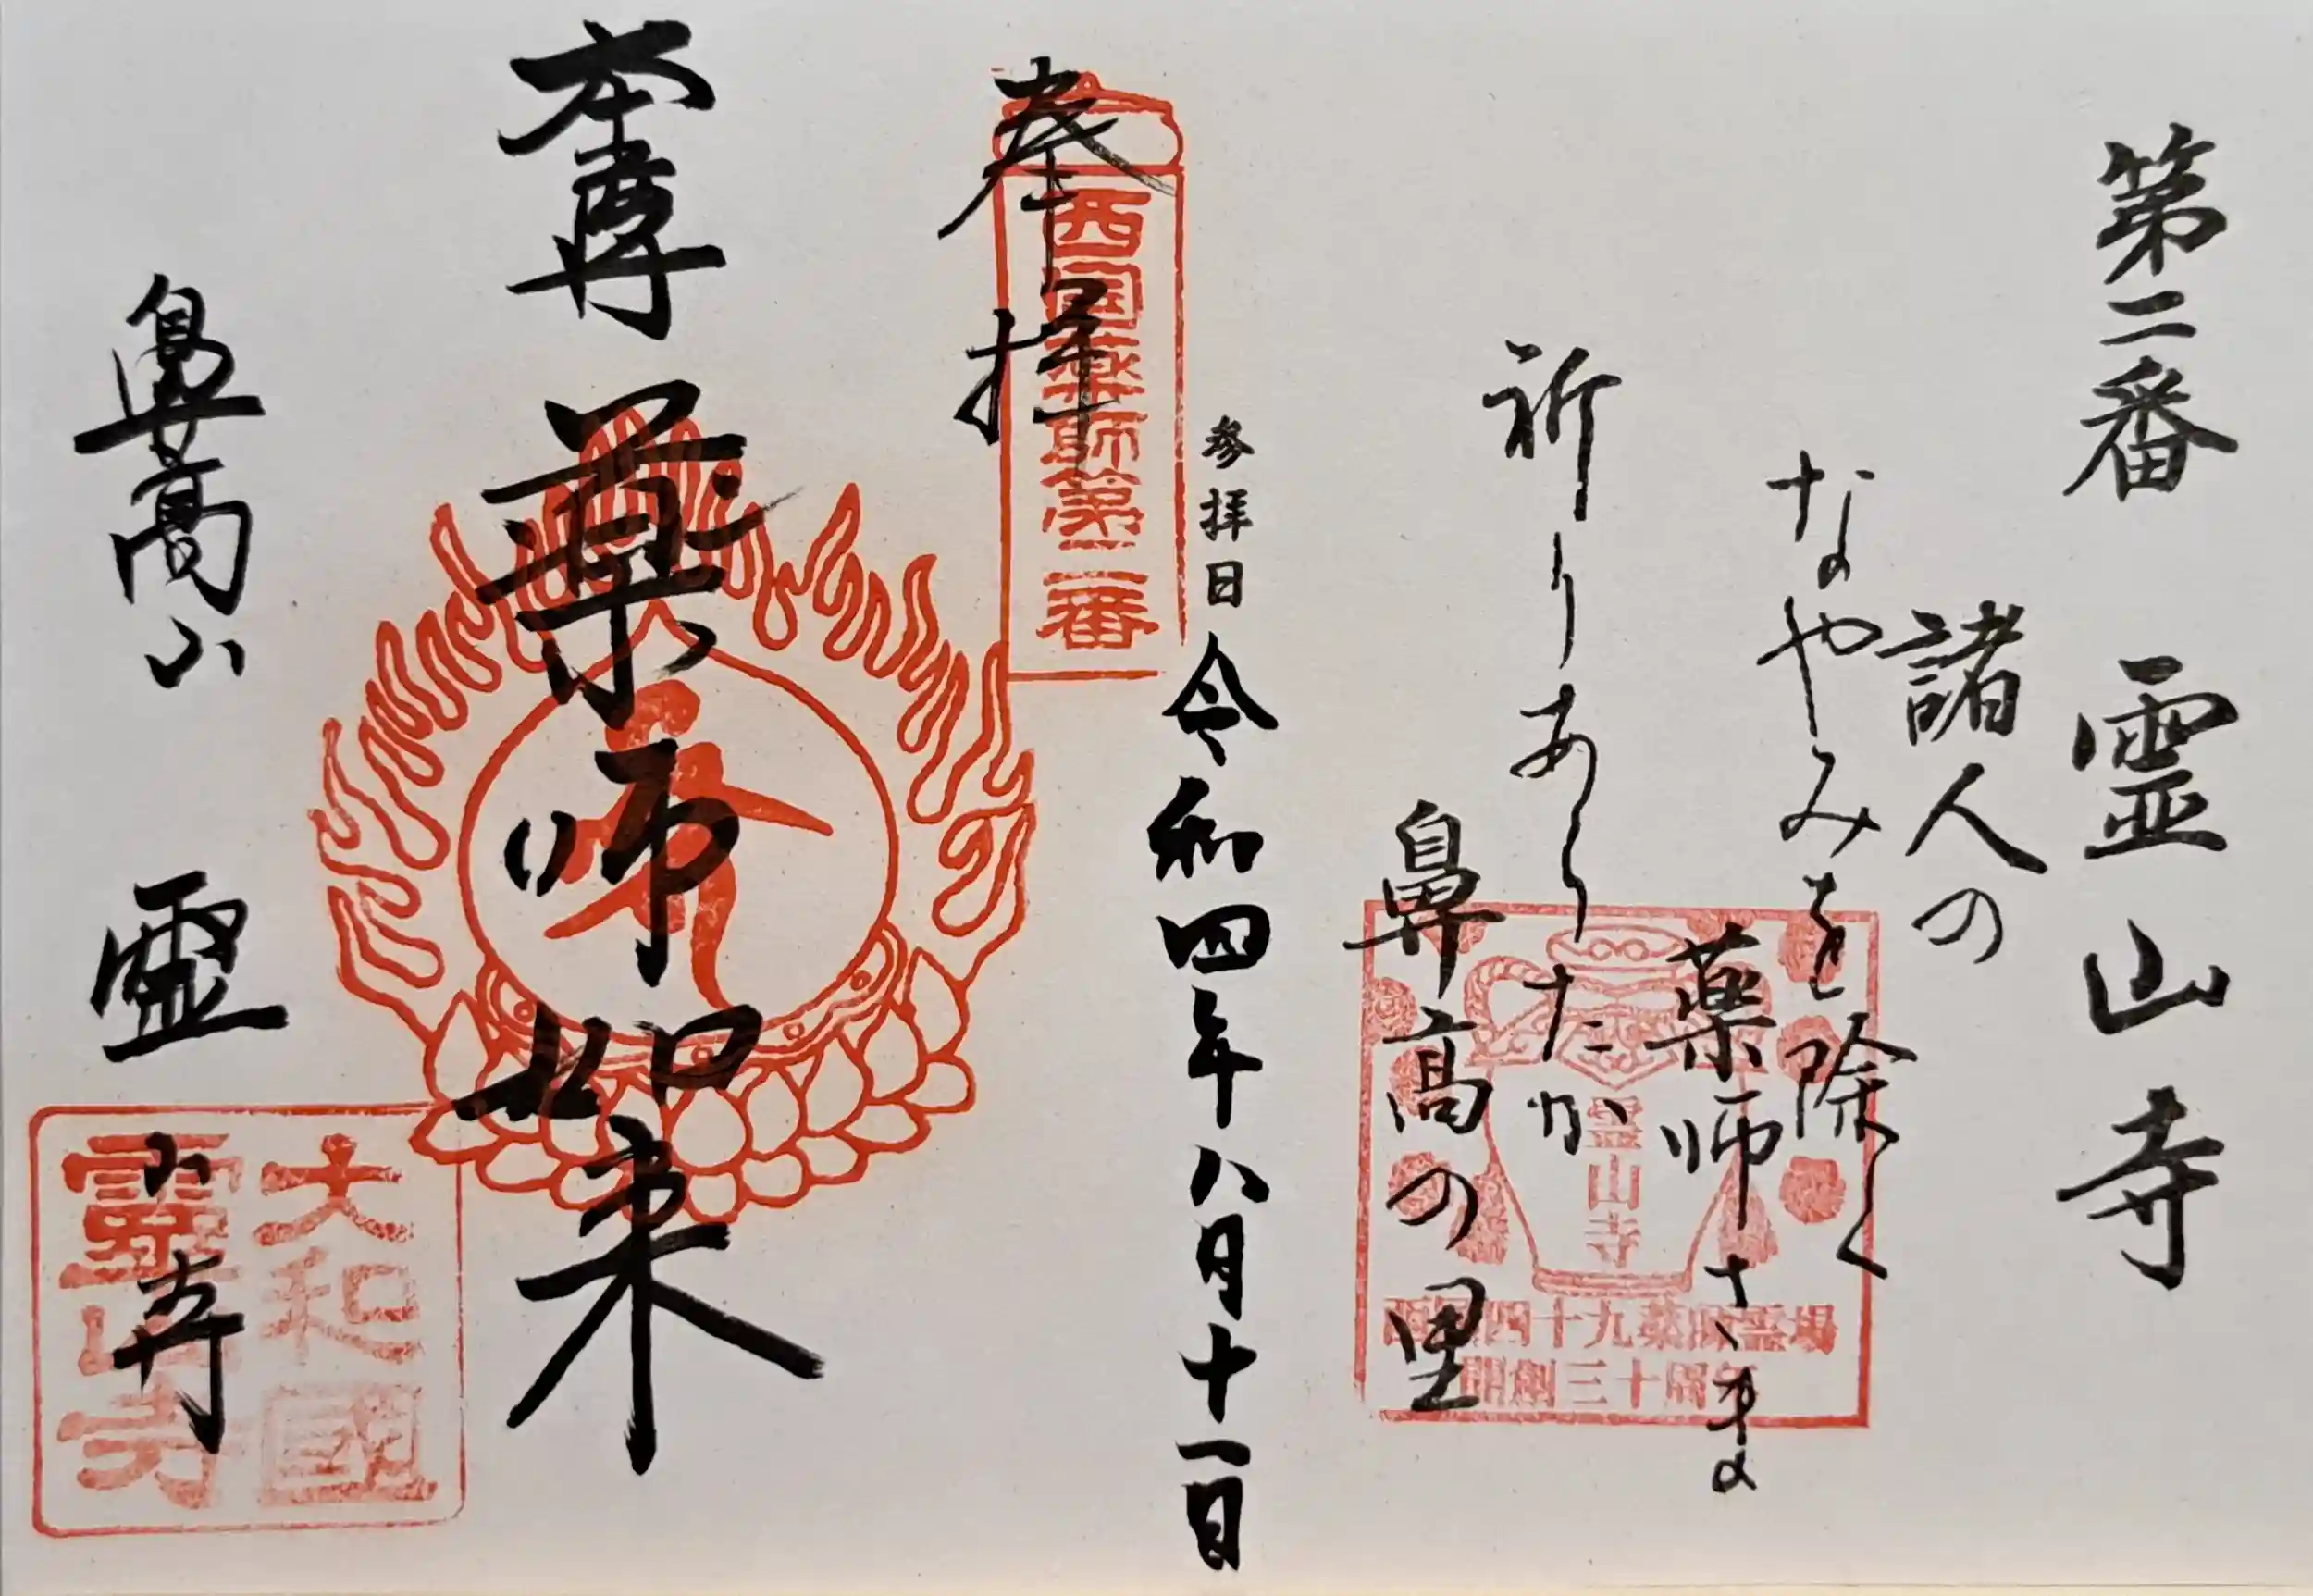 第二番 霊山寺
諸人の
なやみを除く
薬師さま
祈りあらたか
鼻高の里
霊山寺
西国四十九薬師霊場
開創三十周年
参拝日 令和四年八月十一日
奉拝
西国薬師第二番
本尊 薬師如来
鼻高山 霊山寺
大和國
霊山寺